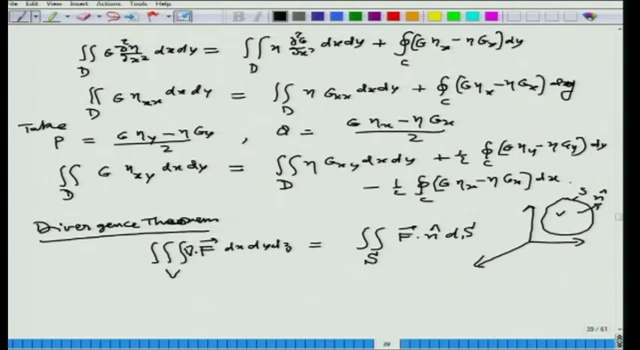 View Insert Actions Tools Help
∬_D G ∂²η/∂x² dxdy = ∬_D η ∂²G/∂x² dxdy + ∮_C (G η_x − η G_x) dy
∬_D G η_xx dxdy = ∬_D η G_xx dxdy + ∮_C (G η_x − η G_x) dy
Take P = (G η_y − η G_y)/2 , Q = (G η_x − η G_x)/2
∬_D G η_xy dxdy = ∬_D η G_xy dxdy + ½ ∮_C (G η_y − η G_y) dy
− ½ ∮_C (G η_x − η G_x) dx.
Divergence Theorem
∭_V ∇·F⃗ dxdydz = ∬_S F⃗·n̂ dS
S n̂
V
39